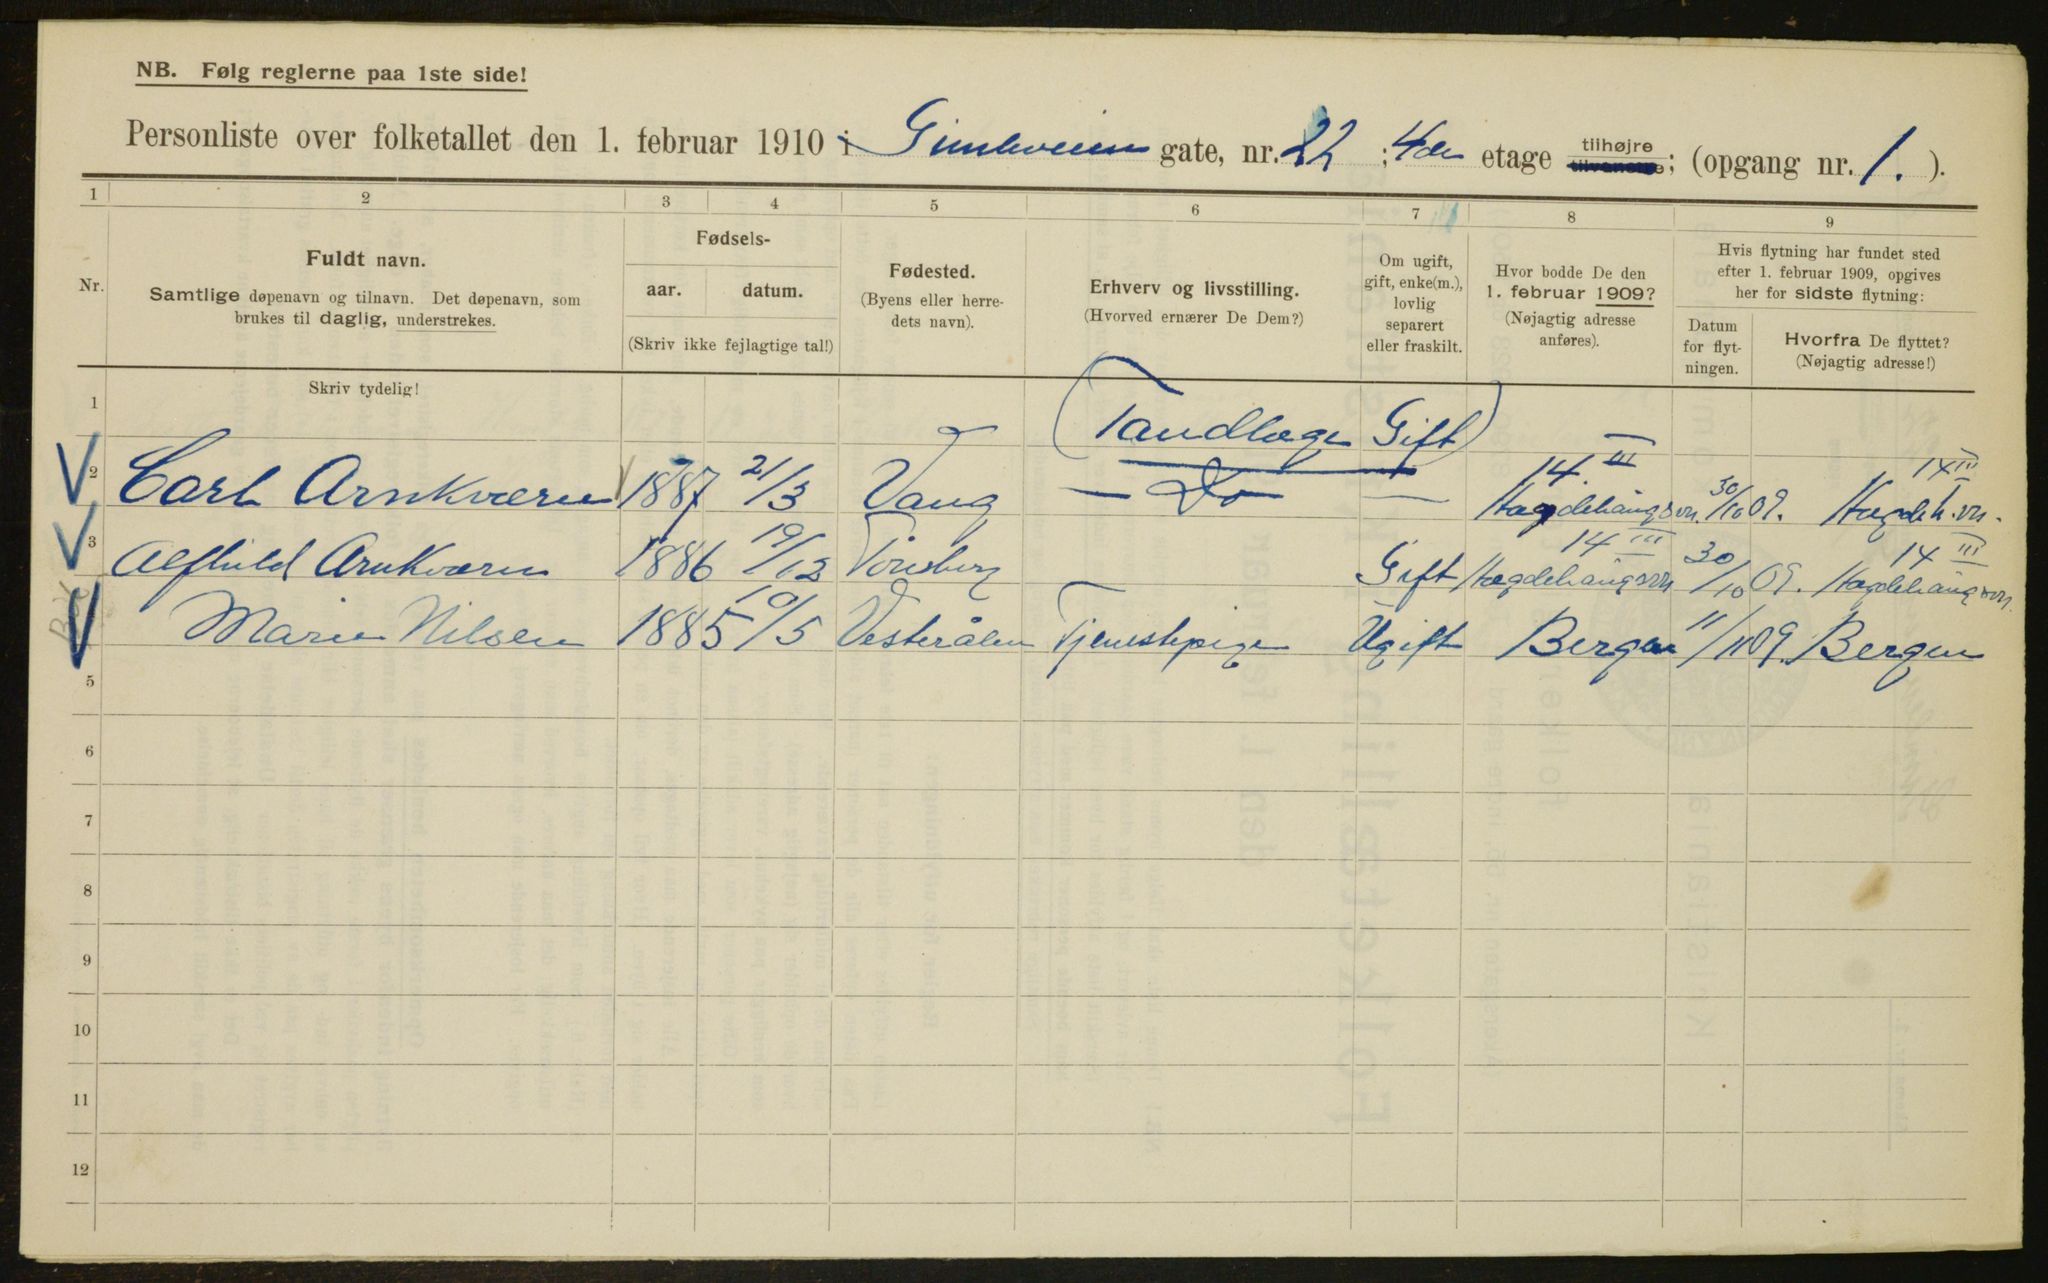 NB. Følg reglerne paa 1ste side!
Personliste over folketallet den 1. februar 1910 i Gimleveien gate, nr. 22 ; 4de etage tilhøjre tilvenstre; (opgang nr. 1. ).
1 2 3 4 5 6 7 8 9
Nr.
Fuldt navn.
Samtlige døpenavn og tilnavn. Det døpenavn, som
brukes til daglig, understrekes.
Skriv tydelig!
Fødsels-
aar. datum.
(Skriv ikke fejlagtige tal!)
Fødested.
(Byens eller herre-
dets navn).
Erhverv og livsstilling.
(Hvorved ernærer De Dem?)
Om ugift,
gift, enke(m.),
lovlig
separert
eller fraskilt.
Hvor bodde De den
1. februar 1909?
(Nøjagtig adresse
anføres).
Hvis flytning har fundet sted
efter 1. februar 1909, opgives
her for sidste flytning:
Datum
for flyt-
ningen.
Hvorfra De flyttet?
(Nøjagtig adresse!)
1 (Tandlæge Gift)
2 Carl Arnkværn 1887 21/3 Vang — Do — — 14 III Hægdehaugsvn. 30/10 09. 14 III Hægdeh.vn.
3 Alfhild Arnkværn 1886 19/12 Tönsberg Gift 14 III Hægdehaugsvn 30/10 09. 14 III Hægdehaugsvn.
Marie Nilsen 1885 10/5 Vesterålen Tjenestepige Ugift Bergen 11/11 09. Bergen
5
6
7
8
9
10
11
12